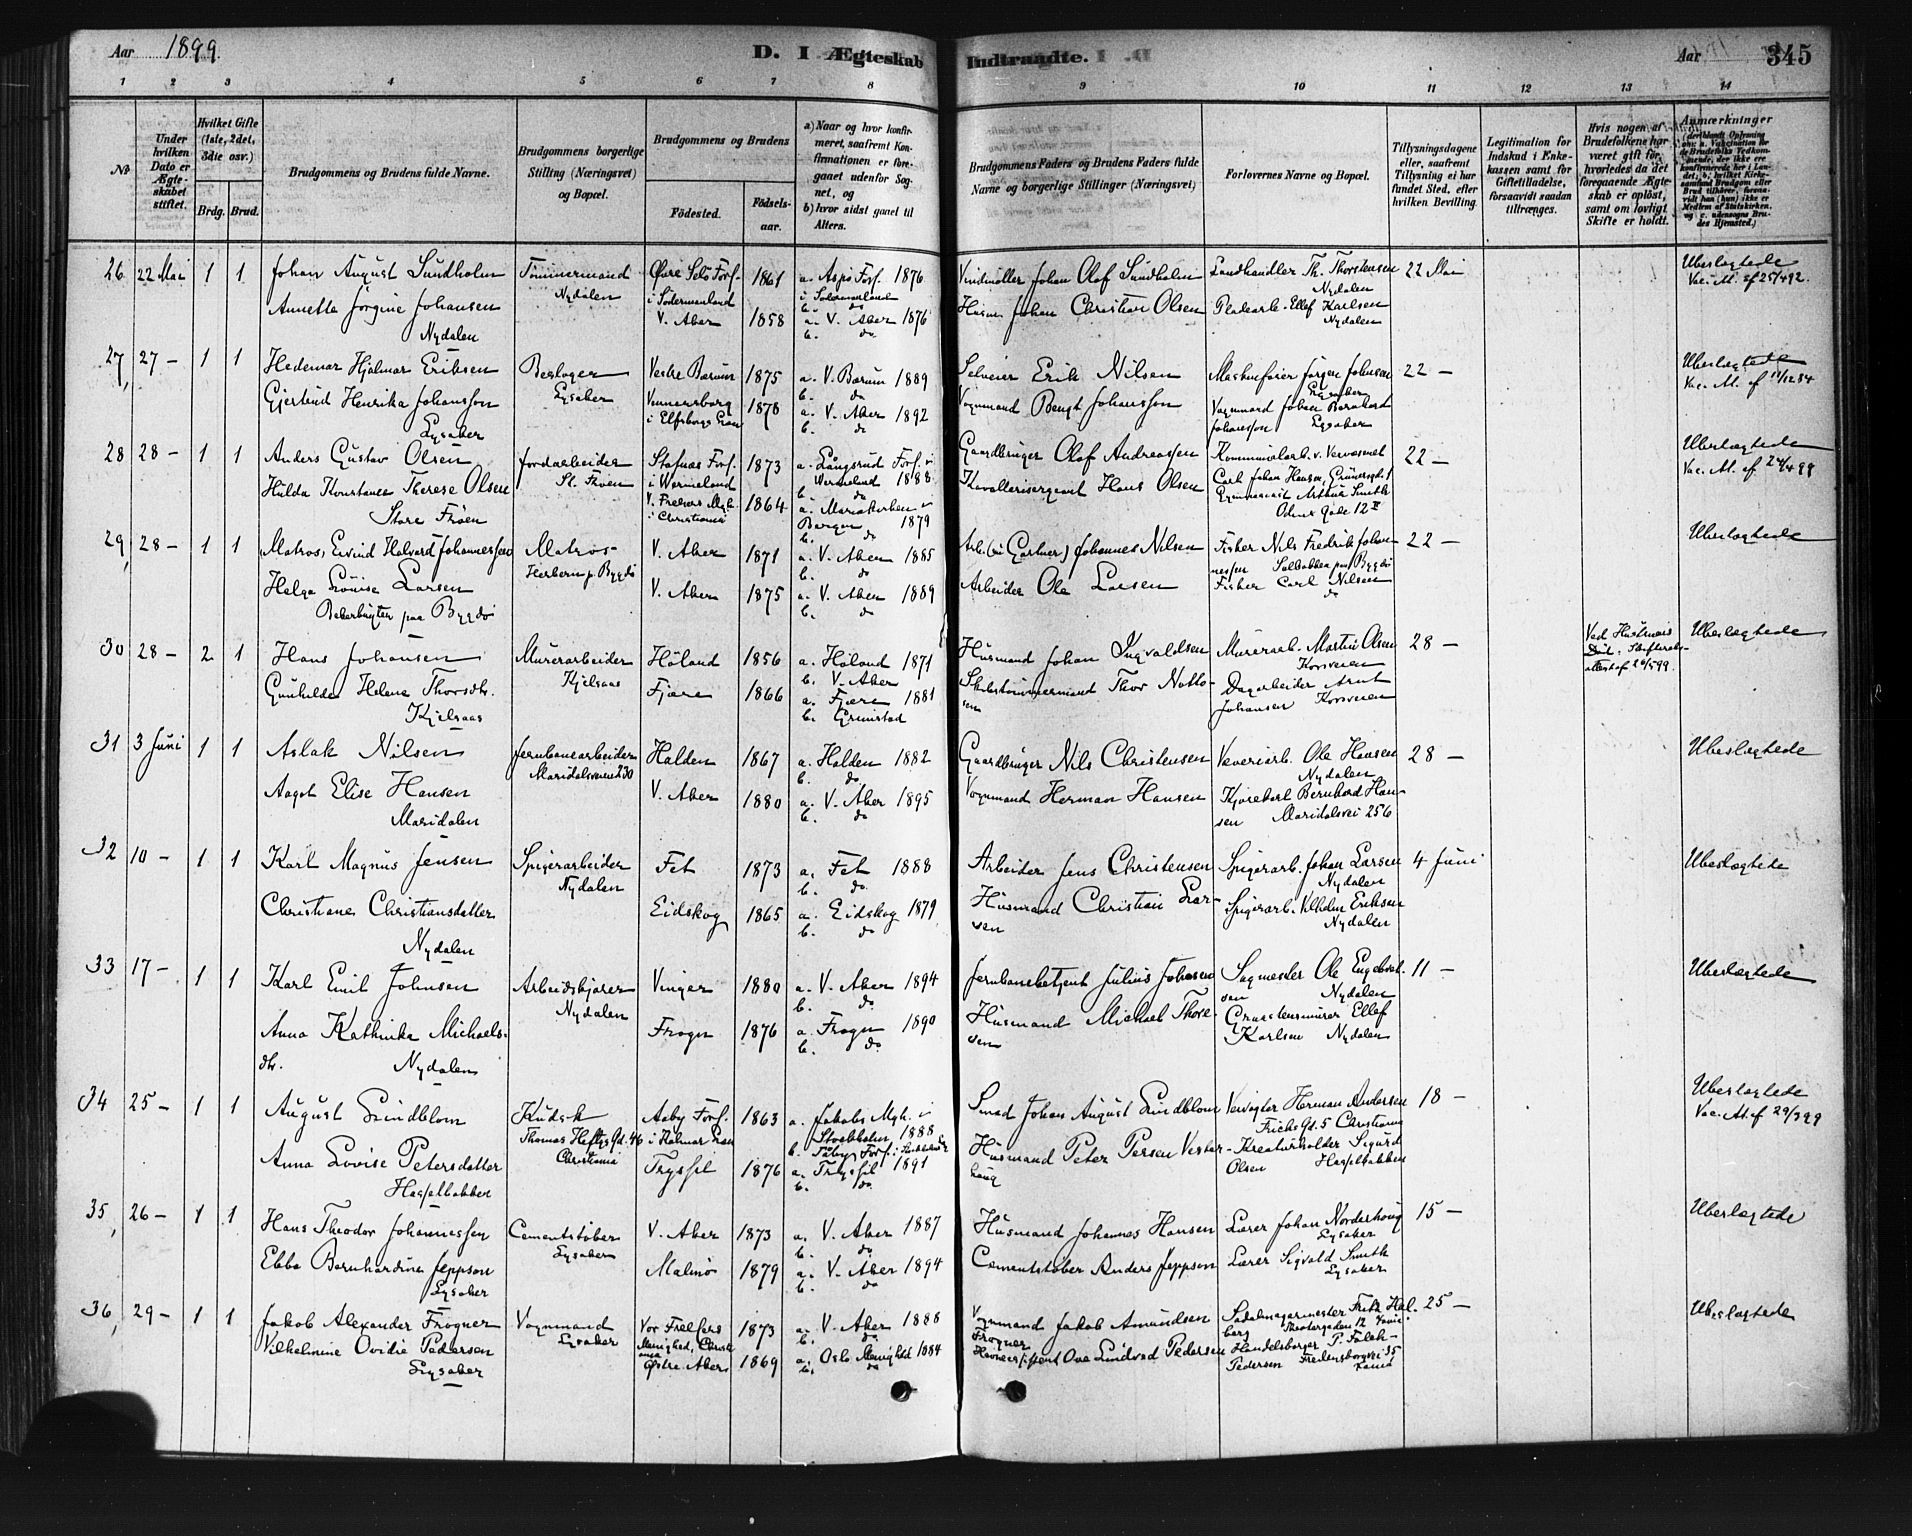 Aar 1899.
D. I Ægteskab Indtraadte.
Aar 345
1 2 3 4 5 6 7 8 9 10 11 12 13 14
No
Under hvilken Dato er Ægteskabet stiftet.
Hvilket Gifte (1ste, 2det, 3die osv.)
Brdg. Brud.
Brudgommens og Brudens fulde Navne.
Brudgommens borgerlige Stilling (Næringsvei) og Bopæl.
Brudgommens og Brudens
Fødested.
Fødselsaar.
a) Naar og hvor konfirmeret, saafremt Konfirmationen er foregaaet udenfor Sognet, og
b) hvor sidst gaaet til Alters.
Brudgommens Faders og Brudens Faders fulde Navne og borgerlige Stillinger (Næringsvei)
Forlovernes Navne og Bopæl.
Tillysningsdagene eller, saafremt Tillysning ei har fundet Sted, efter hvilken Bevilling.
Legitimation for Indskud i Enkekassen samt for Giftetilladelse, forsaavidt saadan tiltrænges.
Hvis nogen af Brudefolkene har været gift før, hvorledes da det foregaaende Ægteskab er opløst, samt om lovligt Skifte er holdt.
Anmærkninger
26 22 Mai 1 1 Johan August Sundholm Tømmermand Nydalen 1861 a. Aspö Fors. 1876 i Södermanland Johan Olof Sundholm Landhandler Th. Thorstensen Nydalen 22 Mai Ubeslægtede
Annette Jorgine Johansen Nydalen V. Aker 1858 a. V. Aker 1876 b. do Husm. Johan Christian Olsen Pladearb. Ellef Karlsen Nydalen
27, 27 - 1 1 Hedemar Hjalmar Eriksen Lysaker Vestre Bærum 1875 a. V. Bærum 1889 b. do Selveier Erik Nilsen Jørgen Johnsen Lysaker 22 - Ubeslægtede
Gjertrud Henrika Johansson Lysaker Vennersborg i Elfsborgs Læn 1878 a. V. Aker 1892 b. do Vognmand Bengt Johansson Vognmand Johan Bernhard Johansson Lysaker
28 28 - 1 1 Anders Gustav Olsen Jordarbeider St. Frøen Stafnäs Fors. i Wermeland 1873 a. Långsrud Fors. i Wermeland 1888 Gaardbruger Olaf Andreassen Carl Johan Hansen, 22 - Ubeslægtede
Hilda Konstance Therese Olsen Store Frøen V. Frelsers Mgh. i Christiania 1864 a. Mariakirken i Bergen 1879 b. do Kavallerisergeant Hans Olsen Arthur Smith Odins Gade 12 II
29, 28 - 1 1 Matros, Eivind Halvard Johannessen Matros - Herbern p. Bygdø V. Aker 1871 a. V. Aker 1885 b. do Arb. (Gartner) Johannes Nilsen Fisker Nils Fredrik Johannessen Solbakken paa Bygdø 22 - Ubeslægtede
Helga Lovise Larsen Bekkebugten paa Bygdø V. Aker 1875 a. V. Aker 1889 b. do Arbeider Ole Larsen Fisker Carl Nilsen do
30 28 - 2 1 Hans Johansen Murerarbeider Kjelsaas Høland 1856 a. Høland 1871 b. V. Aker Husmand Johan Ingvaldsen Murerarb. Martin Olsen Korsveien 28 - Ved Hustrues Død. Skifteretsattest af 26/5 99. Ubeslægtede
Gunhilde Helene Thorsdtr. Kjelsaas Fjære 1866 a. Fjære 1881 b. Grimstad Skibstømmermand Thor Nottosen Dagarbeider Arnt Johansen Korsveien
31 3 Juni 1 1 Aslak Nilsen Jernbanearbeider Maridalsveien 230 Halden 1867 a. Halden 1882 b. do Gaardbruger Nils Christensen Væveriarb. Ole Hansen Nydalen 28 - Ubeslægtede
Aagot Elise Hansen Maridalen V. Aker 1880 a. V. Aker 1895 b. do Vognmand Herman Hansen Kjørekarl Bernhard Hansen Maridalsvei 256
32 10 - 1 1 Karl Magnus Jensen Spigerarbeider Nydalen Fet 1873 a. Fet 1888 b. do Arbeider Jens Christensen Spigerarb. Johan Larsen Nydalen 4 Juni Ubeslægtede
Christiane Christiansdatter Nydalen Eidskog 1865 a. Eidskog 1879 b. do Husmand Christian Larsen Spigerarb. Vilhelm Eriksen Nydalen
33 17 - 1 1 Karl Emil Johnsen Arbeidskjører Nydalen Vinger 1880 a. V. Aker 1894 b. do Jernbanebetjent Julius Johnsen Sagmester Ole Engebretsen Nydalen 11 - Ubeslægtede
Anna Kathinka Michaelsdtr. Nydalen Frogn 1876 a. Frogn 1890 b. do Husmand Michael Thoresen Graastensmurer Ellef Karlsen Nydalen
34 25 - 1 1 August Lindblom Kudsk Thomas Heftyes Gd. 46 Christiania Aaby Fors. i Kalmar Læn 1863 a. Jakobs Mgh. i Stockholm 1888 Smed Johan August Lindblom Herman Andersen Erichs Gd. 5 Christiania 18 - Ubeslægtede
Anna Lovise Petersdatter Hasselbakken Trysil 1876 a. Trysil 1891 b. do Husmand Peter Persen Vesterhaug Kreaturholder Sigurd Olsen Hasselbakken
35, 26 - 1 1 Hans Theodor Johannessen Cementstøber Lysaker V. Aker 1873 a. V. Aker 1887 b. do Husmand Johannes Hansen Lærer Johan Norderhoug Lysaker 15 - Ubeslægtede
Ebba Bernhardine Jeppson Lysaker Malmø 1879 a. V. Aker 1894 b. do Cementstøber Anders Jeppson Lærer Sigvald Smith Lysaker
36, 29 - 1 1 Jakob Alexander Frogner Vognmand Lysaker Vor Frelsers Menighed, Christiania 1873 a. V. Aker 1888 b. do Vognmand Jakob Amundsen Frogner Sadelmagermester Fritz Halberg Theatergaden 12 25 - Ubeslægtede
Vilhelmine Ovidie Pedersen Lysaker Østre Aker 1869 a. Oslo Menighed 1884 b. do Ove Lindvad Pedersen Handelsborger P. Falck-Pedersen Fredensborgvei 35